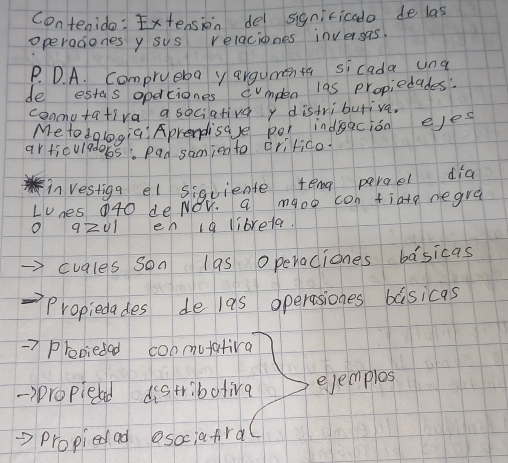 Contenido: Extensión del significado de las
operaciones y sus relaciones inversas.
P.D.A. comprueba y argumenta si cada una
de estas operciones cumplen las propiedades:
conmutativa asociativa y distributiva.
Metodologia: Aprendisaje por indagación ejes
articuladores: pansamiento critico.
investiga el siguiente tema para el día
Lunes 04 de Nov. a mano con tinta negra
o azul en la libreta.
→ cuales son las operaciones básicas
→ Propiedades de las operasiones básicas
→ Propiedad conmutativa
→ propiedad distributiva
ejemplos
→ Propiedad asociativa